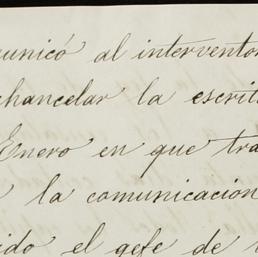 unicó al interventor
chancelar la escrit
Enero en que tra
la comunicacion
ido el gefe de